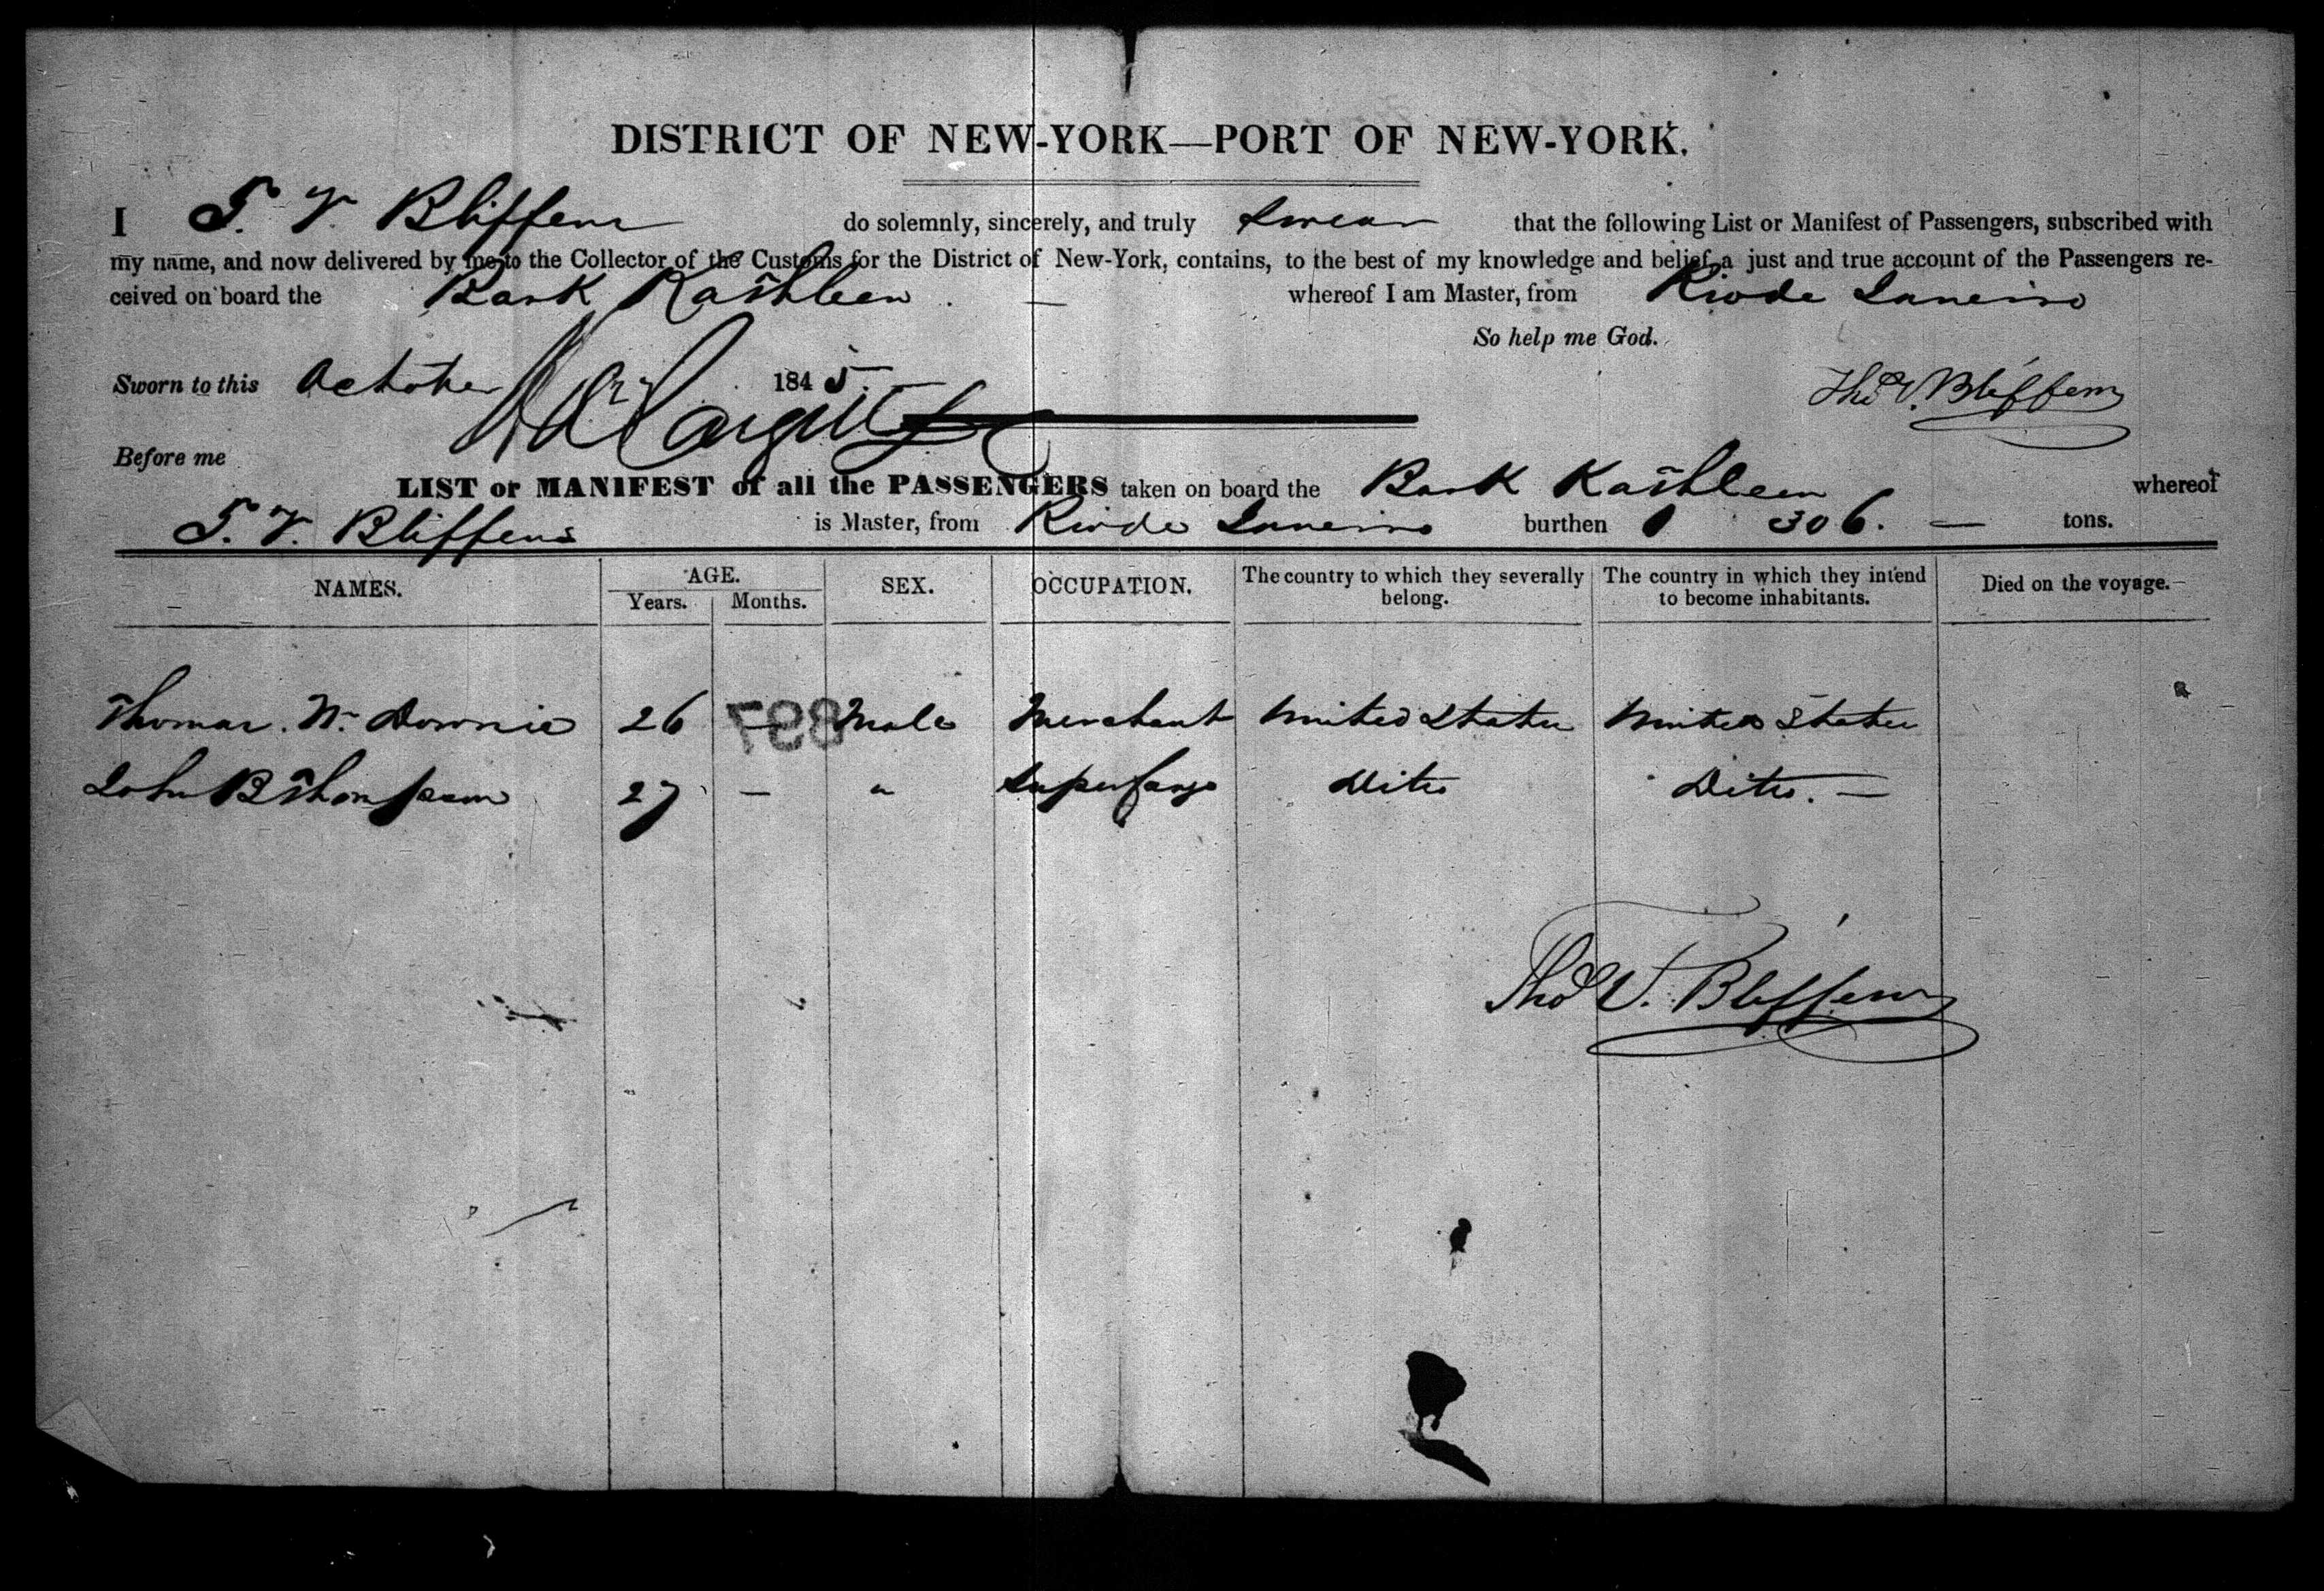 DISTRICT OF NEW-YORK—PORT OF NEW-YORK.
I T. V. Bliffens do solemnly, sincerely, and truly swear that the following List or Manifest of Passengers, subscribed with
my name, and now delivered by me to the Collector of the Customs for the District of New-York, contains, to the best of my knowledge and belief, a just and true account of the Passengers re-
ceived on board the Bark Kathleen whereof I am Master, from Rio de Janeiro
So help me God.
Sworn to this October 1845. Thos V. Bliffens
Before me
LIST or MANIFEST of all the PASSENGERS taken on board the Bark Kathleen whereof
T. V. Bliffens is Master, from Rio de Janeiro burthen 306. — tons.
NAMES. AGE. SEX. OCCUPATION. The country to which they severally belong. The country in which they intend to become inhabitants. Died on the voyage.
Years. Months.
Thomas W. Downie 26 — Male Merchant United States United States
897
John B Thompson 27 — " Supercargo Ditto Ditto. —
Thos V. Bliffens